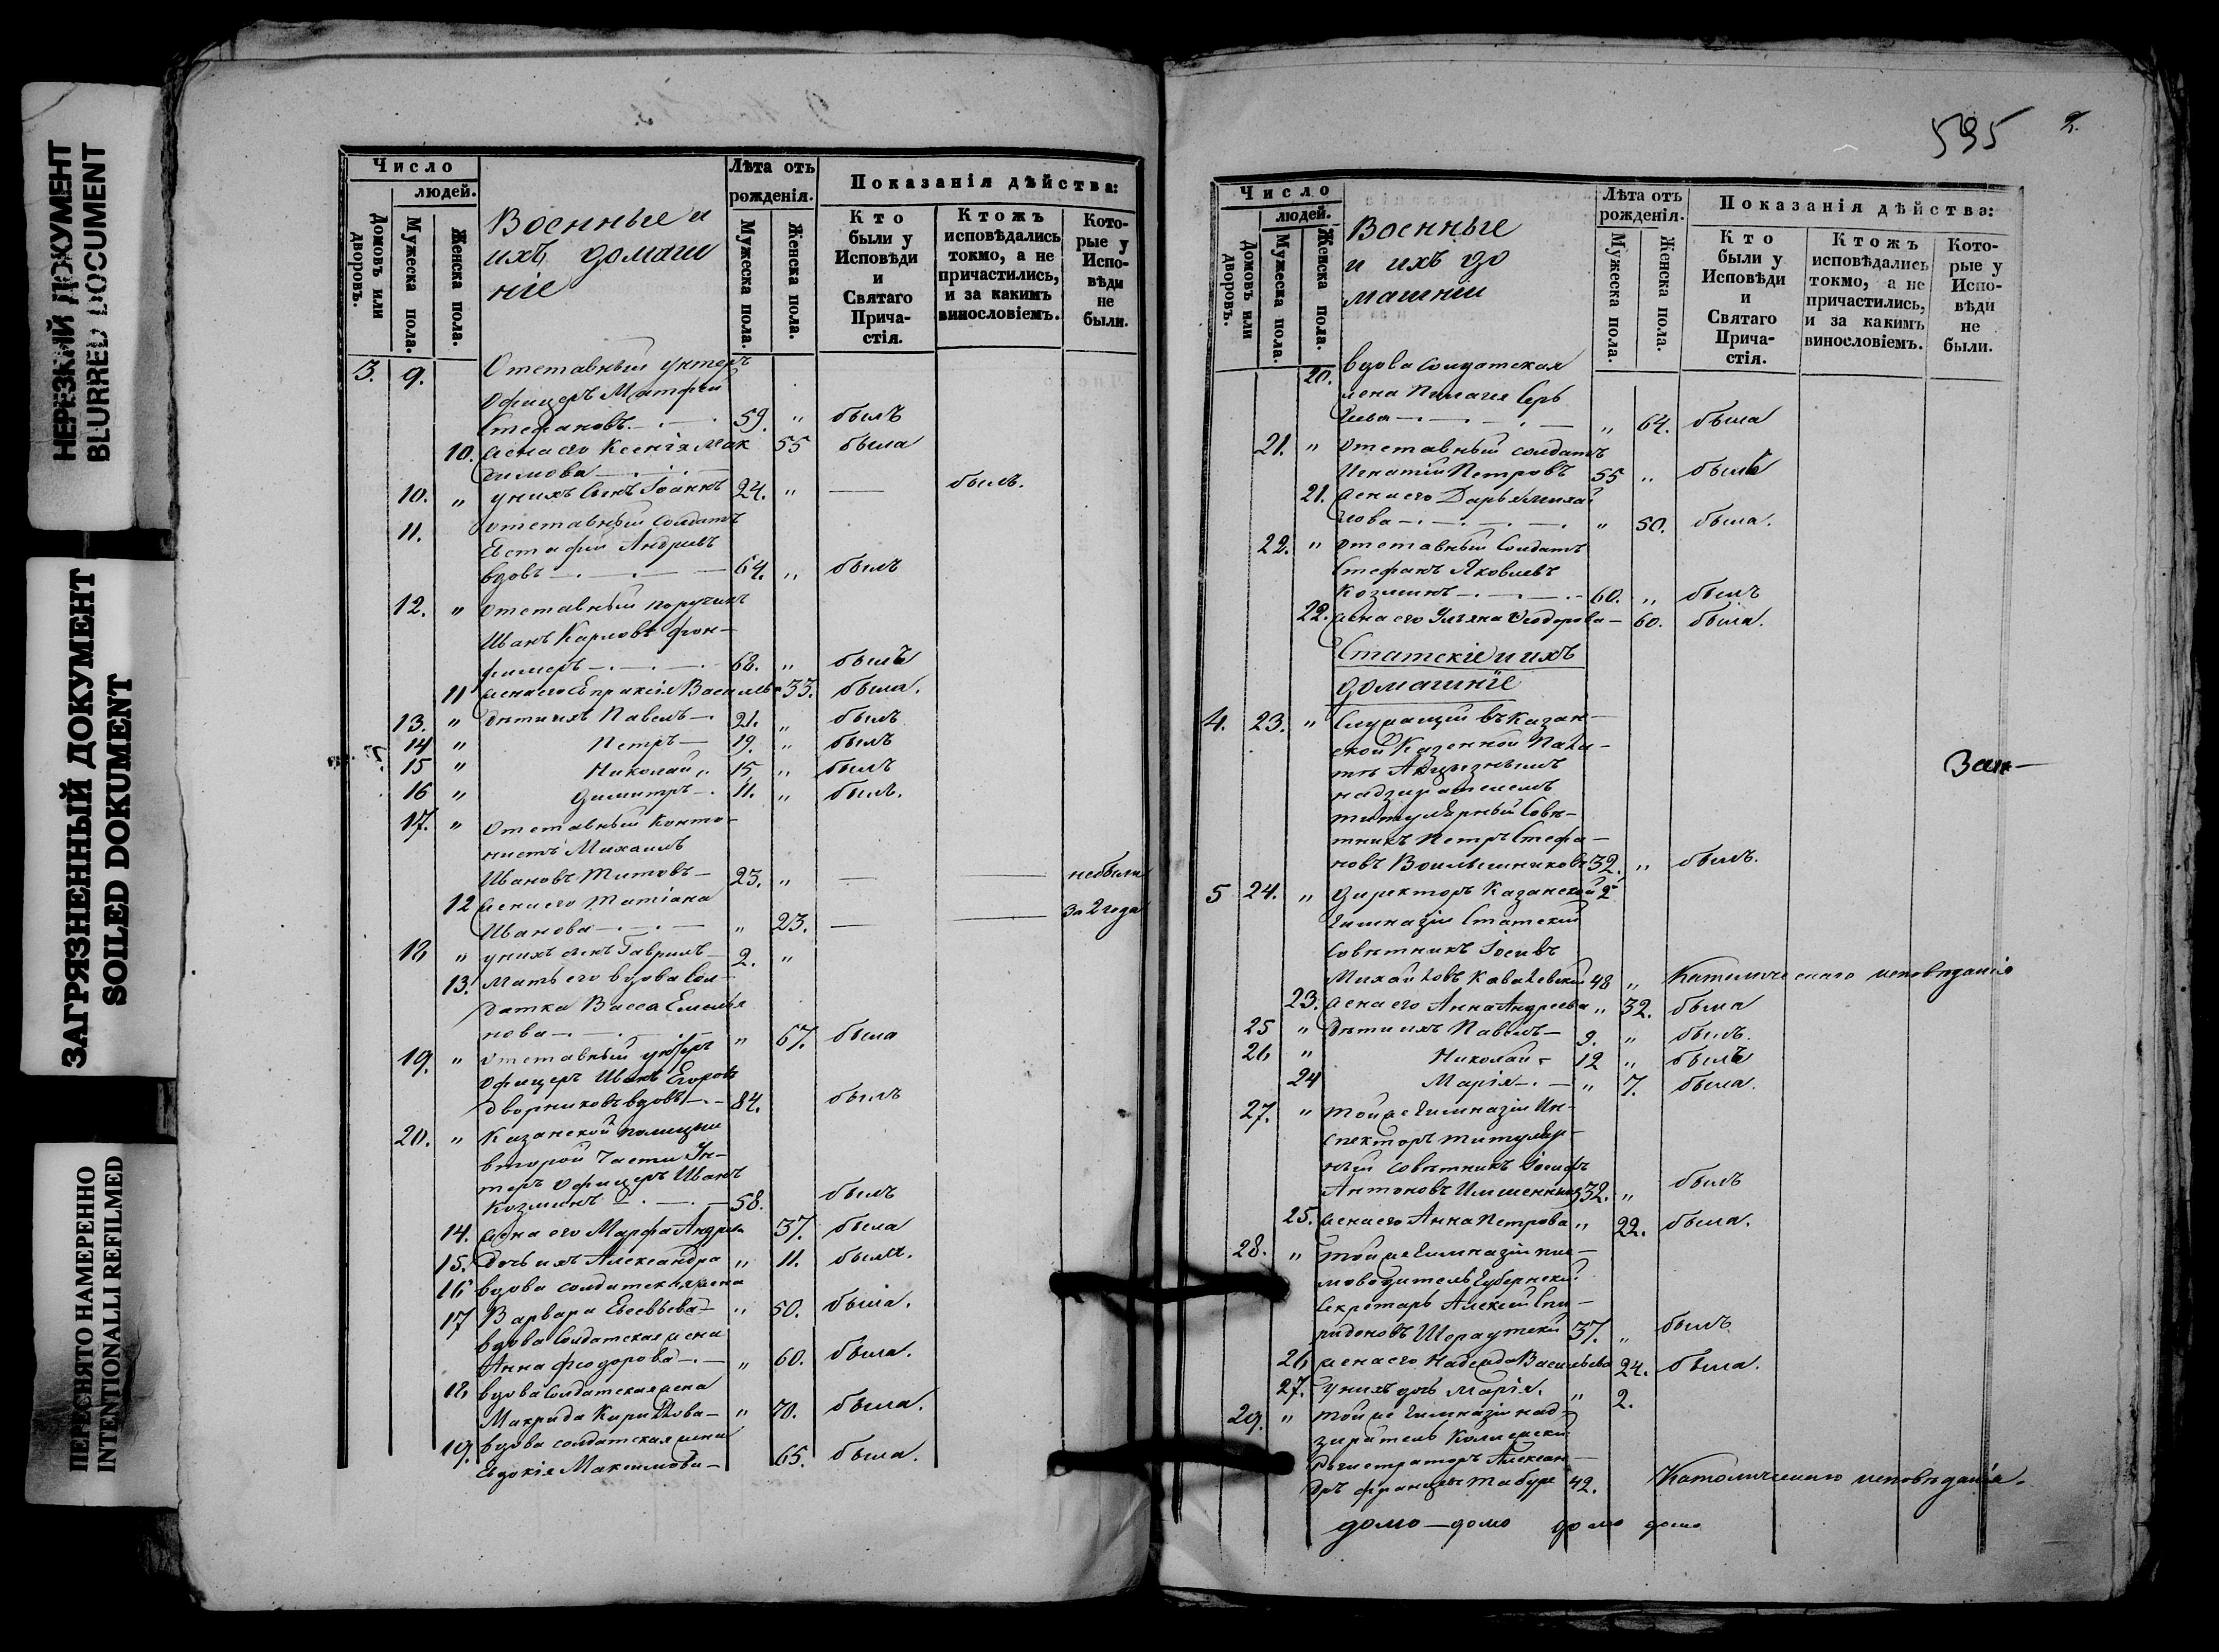 НЕРЕЗКИЙ ДОКУМЕНТ
BLURRED DOCUMENT
ЗАГРЯЗНЕННЫЙ ДОКУМЕНТ
SOILED DOKUMENT
ПЕРЕСНЯТО НАМЕРЕННО
INTENTIONALLI REFILMED
Число
людей.
Домовъ или дворовъ.
Мужеска пола.
Женска пола.
Военные и
ихъ домаш
ніе
Лѣта отъ
рожденія.
Мужеска пола.
Женска пола.
Показанія дѣйства:
Кто
были у
Исповѣди
и
Святаго
Прича-
стія.
Ктожъ
исповѣдались
токмо, а не
причастились,
и за какимъ
винословіемъ.
Кото-
рые у
Испо-
вѣди
не
были.
3. 9. Отставный унтеръ
офицеръ Матфей
Стефановъ 59. " былъ
10. жена его Ксенія Мак 55 была
симова
10. " у нихъ сынъ Іоаннъ 24. " — былъ.
11. отставный солдатъ
Евстафій Андреевъ
вдовъ 64. " былъ
12. " отставный поручикъ
Иванъ Карловъ фон-
68. " былъ
11 жена его Евпраксія Васильев 33. была.
13. " дѣти ихъ Павелъ — 21. " былъ
14 " Петръ — 19. " былъ
15 " Николай 15. " былъ
16 " Димитръ — 11. " былъ.
17. " отставный канто-
нистъ Михаилъ
Ивановъ Титовъ — 23. " — — небыли
12 жена его Татіана
Иванова " 23. — — за 2 года
18 " у нихъ сынъ Гаврилъ — 2. "
13. мать его вдова сол-
датка Васса Емелья
нова " 67. была
19. " отставный унтеръ
офицеръ Иванъ Егоровъ
Дворниковъ вдовъ 84. былъ
20. " Казанской полиции
второй части Ун-
теръ офицеръ Иванъ
Козминъ 58. былъ
14. жена его Марфа Андрее 37. была
15. дочь ихъ Александра " 11. была.
16 вдова солдатская жена
17 Варвара Евсевьева " 50. была.
вдова солдатская жена
Анна Феодорова " 60. была.
18 вдова солдатская жена
Макрида Кирилова — " 70. была.
19. вдова солдатская жена
Евдокія Максимова — 65. была.
595 2.
Число
людей.
Домовъ или дворовъ.
Мужеска пола.
Женска пола.
Военные
и ихъ до
машніи
Лѣта отъ
рожденія.
Мужеска пола.
Женска пола.
Показанія дѣйства:
Кто
были у
Исповѣди
и
Святаго
Прича-
стія.
Ктожъ
исповѣдались
токмо, а не
причастились,
и за какимъ
винословіемъ.
Кото-
рые у
Испо-
вѣди
не
были.
20. вдова солдатская
жена Пелагея Сер
" 64. была
21. " отставный солдатъ
Игнатій Петровъ 55 " былъ
21. жена его Дарья Михай
лова " 50. была.
22. " отставный солдатъ
Стефанъ Яковлевъ
Козминъ 60. " былъ
22. жена его Ульяна Феодорова — 60. была.
Статскіе и ихъ
домашніе
4. 23. " Служащій въ Казан-
ской Казенной Пала-
тѣ Акцизнымъ
надзирателемъ
титулярный совѣ-
тникъ Петръ Стефа-
новъ 32. " былъ.
5 24. " Директоръ Казанской 2й
Гимназіи Статскій
совѣтникъ Іосифъ
Михайловъ Ковалевскій 48 " Католическаго исповѣданія
23. жена его Анна Андреева " 32. была
25 " дѣти ихъ Павелъ — 9. " былъ.
26 " Николай — 12 " былъ
24 Марія — " 7. была.
27. " той же гимназіи Ин-
спекторъ титуляр-
ный совѣтникъ Іосифъ
Антоновъ 32. " былъ
25. жена его Анна Петрова " 22. была.
28. " той же гимназіи пис-
моводитель Губернскій
Секретарь Алексій Спи-
ридоновъ 37. " былъ
26 жена его Надежда Васильева 24. была.
27. у нихъ дочь Марія. " 2.
29. " той же гимназіи над-
зиратель Коллежскій
Регистраторъ Алексан-
дръ 42. Католическаго исповѣданія.
домо — домо домо домо